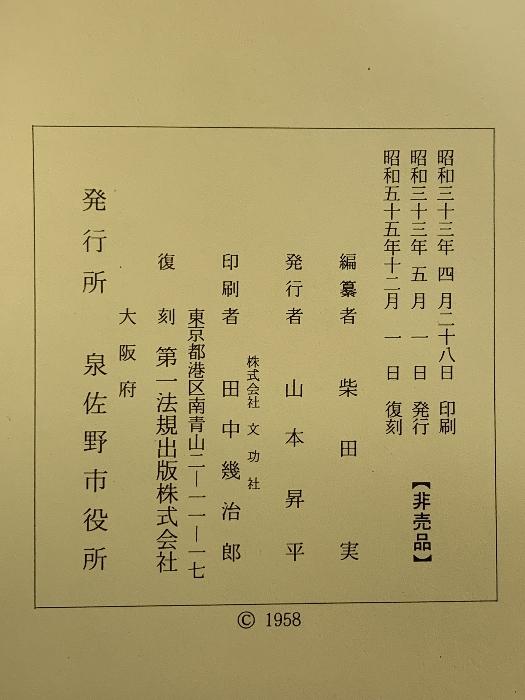 昭和三十三年 四月二十八日 印刷
昭和三十三年 五月 一日 発行 【非売品】
昭和五十五年十二月 一日 復刻
編纂者 柴田 実
発行者 山本昇平
株式会社 文功社
印刷者 田中幾治郎
東京都港区南青山二―一一―一七
復刻 第一法規出版株式会社
大阪府
発行所 泉佐野市役所
© 1958